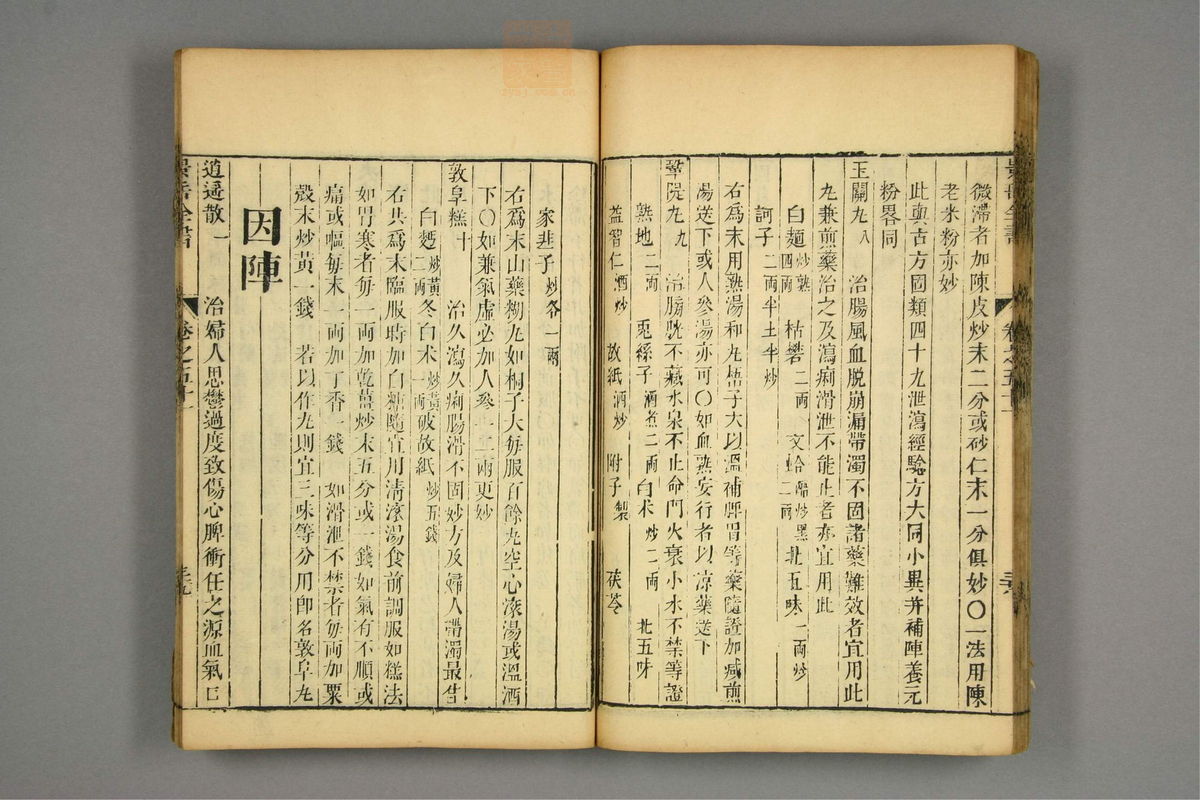 微滯者加陳皮炒末二分或砂仁末一分俱妙〇一法用陳
老米粉亦妙
此與古方固類四十九泄瀉經驗方大同小異并補陣養元
粉畧同
玉關丸八 治腸風血脫崩漏帶濁不固諸藥難效者宜用此
丸兼煎藥治之及瀉痢滑泄不能止者亦宜用此
白麵炒熟四兩 枯礬二兩 文蛤醋炒黑二兩 北五味一兩炒
訶子二兩半生半炒
右爲末用熟湯和丸梧子大以溫補脾胃等藥隨證加減煎
湯送下或人參湯亦可〇如血熱妄行者以凉藥送下
鞏隄丸九 治膀胱不藏水泉不止命門火衰小水不禁等證
熟地二兩 菟絲子酒煮二兩 白术炒二兩 北五味
益智仁酒炒 故紙酒炒 附子製 茯苓
家韭子炒各一兩
右爲末山藥糊丸如桐子大每服百餘丸空心滚湯或溫酒
下〇如兼氣虛必加人參一二兩更妙
敦阜糕十 治久瀉久痢腸滑不固妙方及婦人帶濁最佳
白麪炒黃二兩 冬白术炒黃一兩 破故紙炒五錢
右共爲末臨服時加白糖隨宜用清滚湯食前調服如糕法
如胃寒者每一兩加乾薑炒末五分或一錢如氣有不順或
痛或嘔每末一兩加丁香一錢 如滑泄不禁者每兩加粟
殼末炒黃一錢 若以作丸則宜三味等分用卽名敦阜丸
因陣
逍遙散一 治婦人思鬱過度致傷心脾衝任之源血氣日
景岳全書 卷之五十一